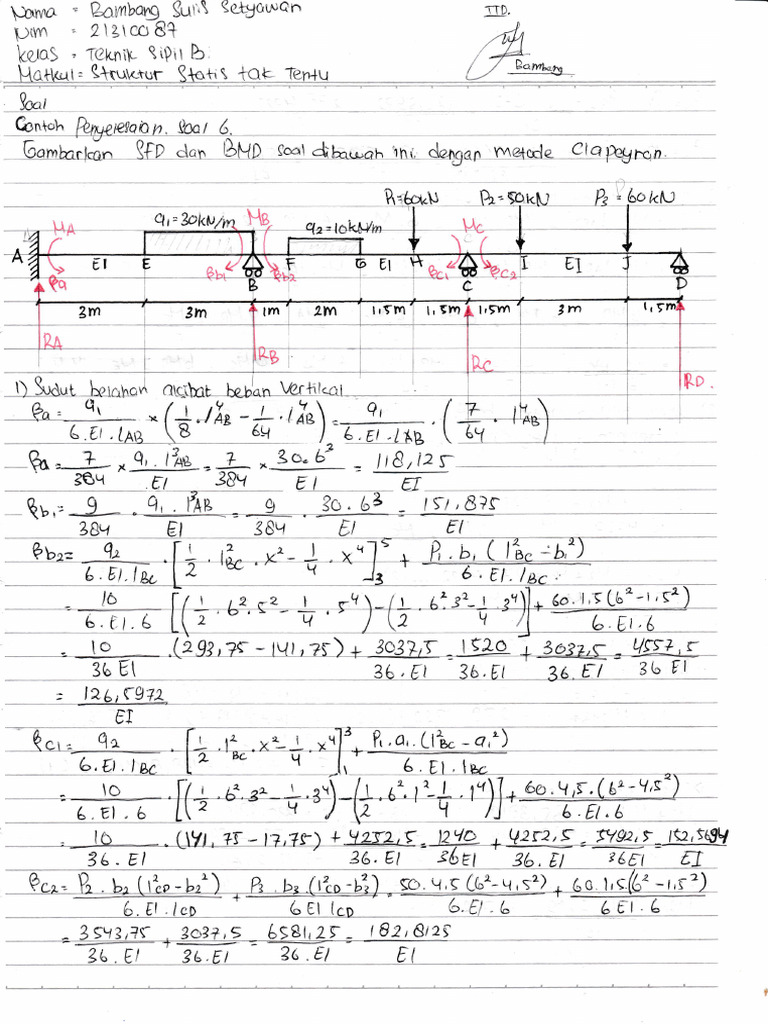 Nama = Bambang Sulis Setyawan
TTD.
Nim = 21310087
Kelas = Teknik Sipil B.
Bambang
Matkul = Struktur Statis tak Tentu
Soal
Contoh Penyelesaian. Soal 6.
Gambarkan SFD dan BMD soal dibawah ini dengan metode Clapeyron.
P1=60kN P2=50kN P3=60kN
MA q1=30kN/m MB q2=10kN/m MC
A EI E F G EI H I EI J
βa βb1 B βb2 βc1 C βc2 D
3m 3m 1m 2m 1,5m 1,5m 1,5m 3m 1,5m
RA RB RC RD.
1) Sudut belahan akibat beban Vertikal
βa = q1/(6.EI.lAB) × (1/8 . l⁴AB − 1/64 . l⁴AB) = q1/(6.EI.lAB) . (7/64 . l⁴AB)
βa = 7/384 × q1.l³AB/EI = 7/384 × 30.6²/EI = 118,125/EI
βb1 = 9/384 . q1.l³AB/EI = 9/384 . 30.6³/EI = 151,875/EI
βb2 = q2/(6.EI.lBC) . [1/2 . l²BC . x² − 1/4 . x⁴]⁵₃ + P1.b1 (l²BC − b1²)/(6.EI.lBC.)
= 10/(6.EI.6) [(1/2 . 6².5² − 1/4 . 5⁴) − (1/2 . 6².3² − 1/4 3⁴)] + 60.1,5(6²−1,5²)/(6.EI.6)
= 10/(36 EI) .(293,75 − 141,75) + 3037,5/(36.EI) = 1520/(36.EI) + 3037,5/(36.EI) = 4557,5/(36 EI)
= 126,5972/EI
βC1 = q2/(6.EI.lBC) . [1/2 . l²BC . x² − 1/4 x⁴]³₁ + P1.a1.(l²BC − a1²)/(6.EI.lBC)
= 10/(6.EI.6) . [(1/2 . 6².3² − 1/4 . 3⁴) − (1/2 . 6².1² − 1/4 . 1⁴)] + 60.4,5.(6²−4,5²)/(6.EI.6)
= 10/(36.EI) .(141,75 − 17,75) + 4252,5/(36.EI) = 1240/(36EI) + 4252,5/(36.EI) = 5492,5/(36EI) = 152,5694/EI
βC2 = P2.b2(l²CD − b2²)/(6.EI.lCD) + P3.b3(l²CD − b²3)/(6EI lCD) = 50.4,5(6²−4,5²)/(6.EI.6) + 60.1,5.(6²−1,5²)/(6EI.6)
= 3543,75/(36.EI) + 3037,5/(36.EI) = 6581,25/(36.EI) = 182,8125/EI